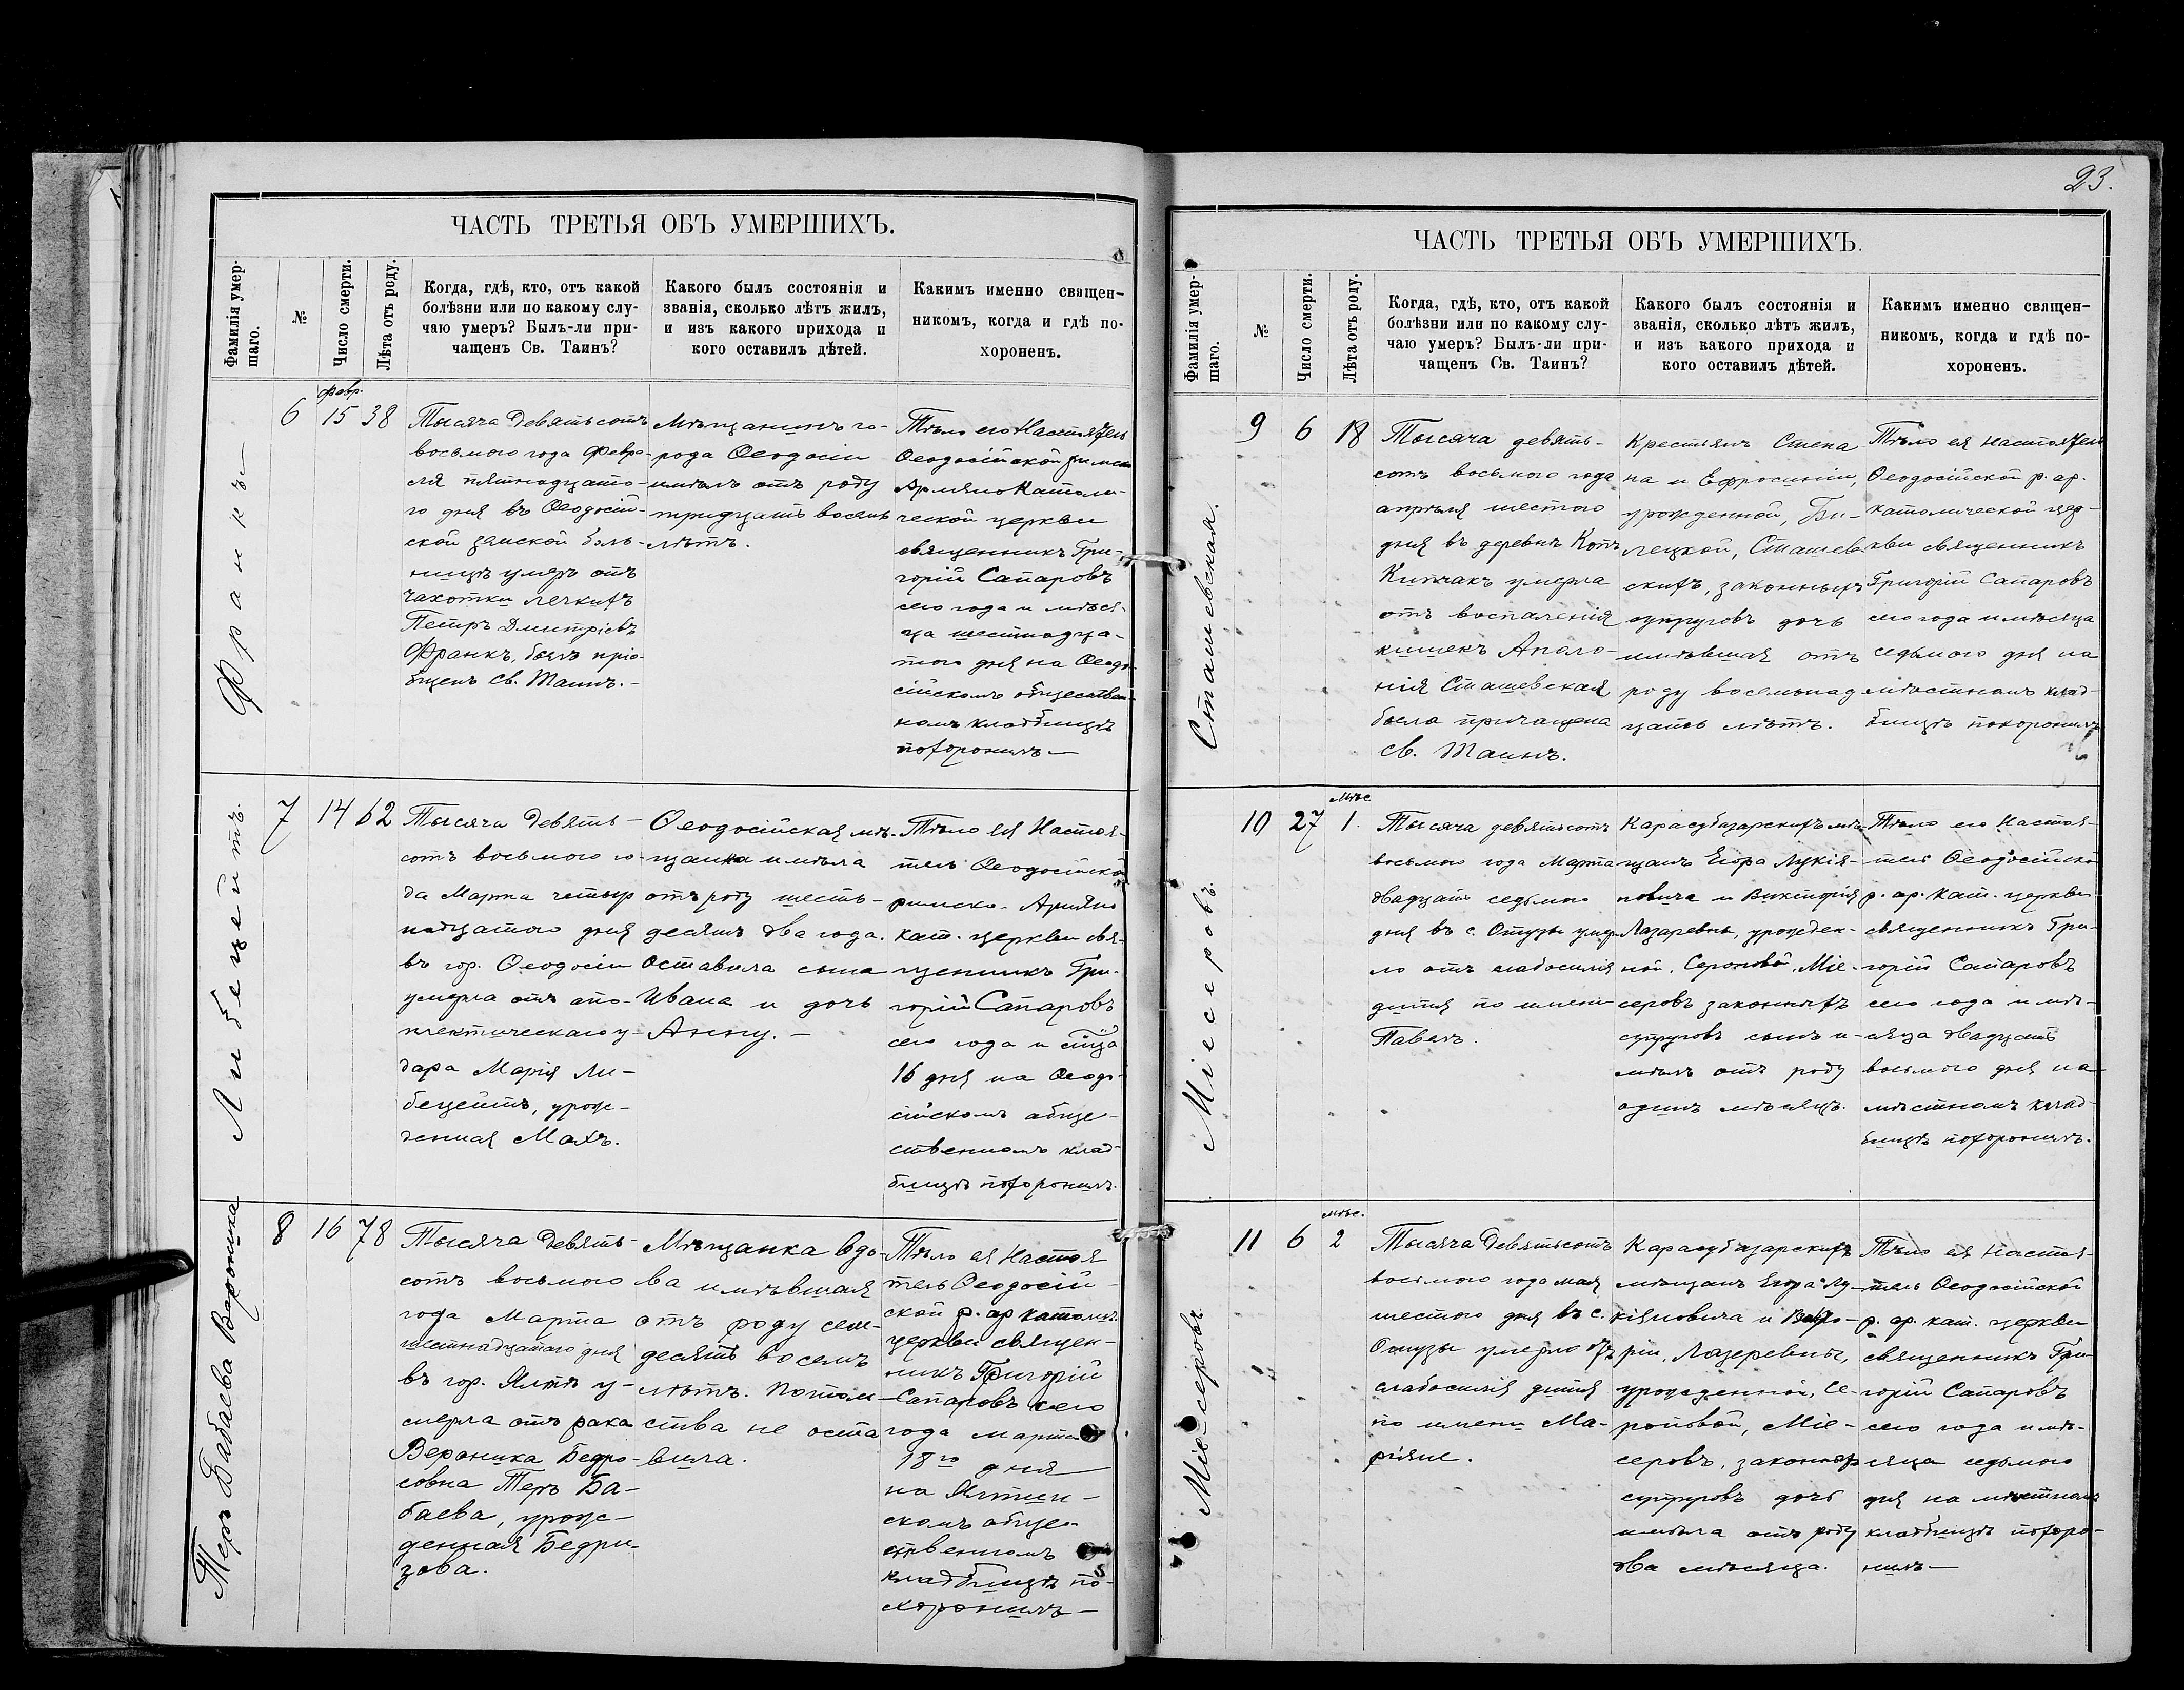 ЧАСТЬ ТРЕТЬЯ ОБЪ УМЕРШИХЪ.
Фамилія умер-
шаго.
№
Число смерти.
Лѣта отъ роду.
Когда, гдѣ, кто, отъ какой
болѣзни или по какому слу-
чаю умеръ? Былъ-ли при-
чащенъ Св. Таинъ?
Какого былъ состоянія и
званія, сколько лѣтъ жилъ,
и изъ какого прихода и
кого оставилъ дѣтей.
Какимъ именно священ-
никомъ, когда и гдѣ по-
хороненъ.
Франкъ
6
Февр.
15
38
Тысяча девятьсотъ
восьмого года Февра-
ля пятнадцато-
го дня въ Ѳеодосій-
ской земской боль-
ницѣ умеръ отъ
чахотки легкихъ
Петръ Дмитріевъ
Франкъ, былъ пріо-
бщенъ Св. Таинъ.-
Мѣщанинъ го-
рода Ѳеодосіи
имѣлъ отъ роду
тридцать восемь
лѣтъ.
Тѣло его Настоятель
Ѳеодосійской римско
Армяно Католи-
ческой церкви
священникъ Гри-
горій Сапаровъ
сего года и мѣся-
ца шестнадца-
того дня на Ѳеодо-
сійскомъ обществен-
номъ кладбищѣ
похоронилъ—
Либецейтъ.
7
14
62
Тысяча девять-
сотъ восьмого го-
да Марта четыр
надцатого дня
въ гор. Ѳеодосіи
умерла отъ апо-
плектическаго у-
дара Марія Ли-
бецейтъ, урож-
денная Махъ.
Ѳеодосійская мѣ-
щанка имѣла
отъ роду шесть-
десятъ два года.
Оставила сына
Ивана и дочь
Анну.-
Тѣло ея Настоя-
тель Ѳеодосійской
римско-Армяно
кат. церкви свя-
щенникъ Гри-
горій Сапаровъ
сего года и м̃ца
16 дня на Ѳеодо-
сійскомъ обще-
ственномъ клад-
бищѣ похоронилъ.
Теръ Бабаева Вероника
8
16
78
Тысяча девять-
сотъ восьмого
года Марта
шестнадцатаго дня
въ гор. Ялтѣ у-
мерла отъ рака
Вероника Бедро-
совна Теръ Ба-
баева, урож-
денная Бедри-
зова.
Мѣщанка вдо-
ва имѣвшая
отъ роду сем-
десятъ восемь
лѣтъ. Потом-
ства не оста
вила.
Тѣло ея Настоя
тель Ѳеодосій-
ской р. ар католич.
церкви священ-
никъ Григорій
Сапаровъ сего
года марта
18го дня
на Ялтин-
скомъ обще-
ственномъ
кладбищѣ по-
хоронилъ—
23.
ЧАСТЬ ТРЕТЬЯ ОБЪ УМЕРШИХЪ.
Фамилія умер-
шаго.
№
Число смерти.
Лѣта отъ роду.
Когда, гдѣ, кто, отъ какой
болѣзни или по какому слу-
чаю умеръ? Былъ-ли при-
чащенъ Св. Таинъ?
Какого былъ состоянія и
званія, сколько лѣтъ жилъ,
и изъ какого прихода и
кого оставилъ дѣтей.
Какимъ именно священ-
никомъ, когда и гдѣ по-
хороненъ.
Сташевская.
9
6
18
Тысяча девять-
сотъ восьмого года
апрѣля шестого
дня въ деревнѣ Копъ
Кипчакъ умерла
отъ воспаленія
кишекъ Аполо-
нія Сташевская,
была причащена
Св. Таинъ.
Крестьянъ Степа
на и Ефросиніи,
урожденной, Би-
лецкой, Сташев
скихъ, законныхъ
супруговъ дочь
имѣвшая отъ
роду восемьнад
цать лѣтъ.
Тѣло ея настоятель
Ѳеодосійской р. ар.
католической цер-
кви священникъ
Григорій Сапаровъ
сего года и мѣсяца
седьмого дня на
мѣстномъ клад-
бищѣ похоронилъ
Міесеровъ.
10
27
мѣс.
1.
Тысяча девятьсотъ
восьмого года Марта
двадцать седьмого
дня въ с. Отузы умер-
ло отъ слабосилія
дитя по имени
Павелъ.
Карасубазарскихъ мѣ-
щанъ Егора Лукія-
новича и Викторія
Лазаревны, урожден-
ной, Сероповой, Міе-
серовъ законныхъ
супруговъ сынъ и-
мѣлъ отъ роду
одинъ мѣсяцъ.
Тѣло его Настоя-
тель Ѳеодосійской
р. ар. кат. церкви
священникъ Гри-
горій Сапаровъ
сего года и мѣ-
сяца двадцать
восьмого дня на
мѣстномъ клад-
бищѣ похоронилъ.
Міе-серовъ.
11
6
мѣс.
2
Тысяча девятьсотъ
восьмого года мая
шестого дня въ с.
Отузы умерло отъ
слабосилія дитя
по имени Ма-
ріяне.
Карасубазарскихъ
мѣщанъ Егора Лу-
кіяновича и Викто-
ріи, Лазеревны,
урожденной, Се-
роповой, Міе-
серовъ, законныхъ
супруговъ дочь
имѣла отъ роду
два мѣсяца.
Тѣло ея Настоя-
тель Ѳеодосійской
р. ар. кат. церкви
священникъ Гри-
горій Сапаровъ
сего года и мѣ-
сяца седьмого
дня на мѣстномъ
кладбищѣ похоро-
нилъ—